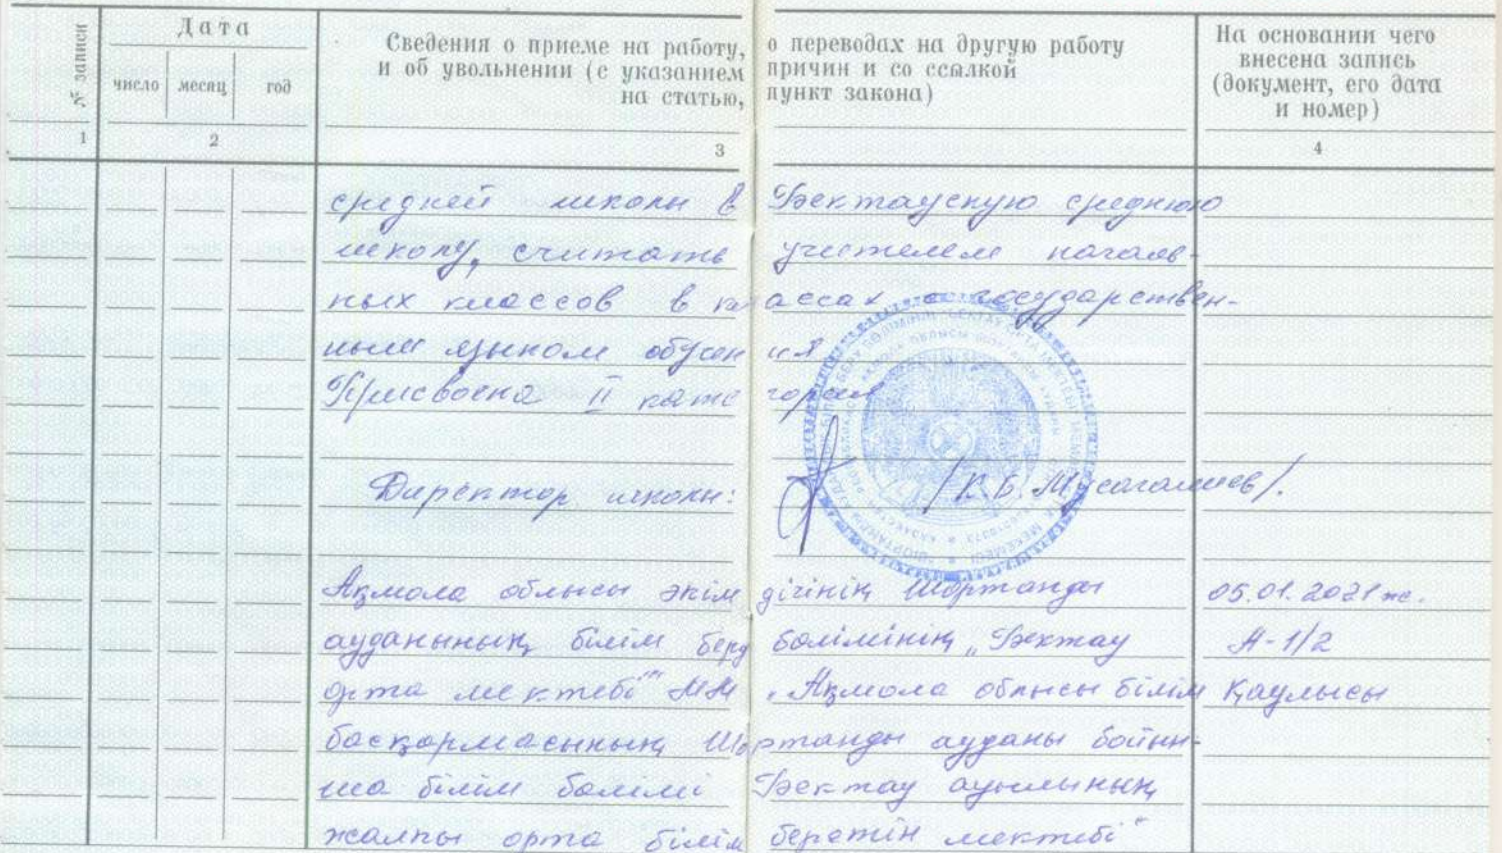 № записи
Дата
число месяц год
Сведения о приеме на работу, о переводах на другую работу
и об увольнении (с указанием причин и со ссылкой
на статью, пункт закона)
На основании чего
внесена запись
(документ, его дата
и номер)
1 2 3 4
средней школы в Бектаускую среднюю
школу, считать учителем началь-
ных классов в классах с государствен-
ным языком обучения
Присвоена II категория
Директор школы: /К.Б. Мусагалиев/.
Ақмола облысы әкімдігінің Шортанды 05.01.2021 ж.
ауданының білім беру бөлімінің „Бектау А-1/2
орта мектебі" ММ „Ақмола облысы білім Қаулысы
басқармасының Шортанды ауданы бойын-
ша білім бөлімі Бектау ауылының
жалпы орта білім беретін мектебі"